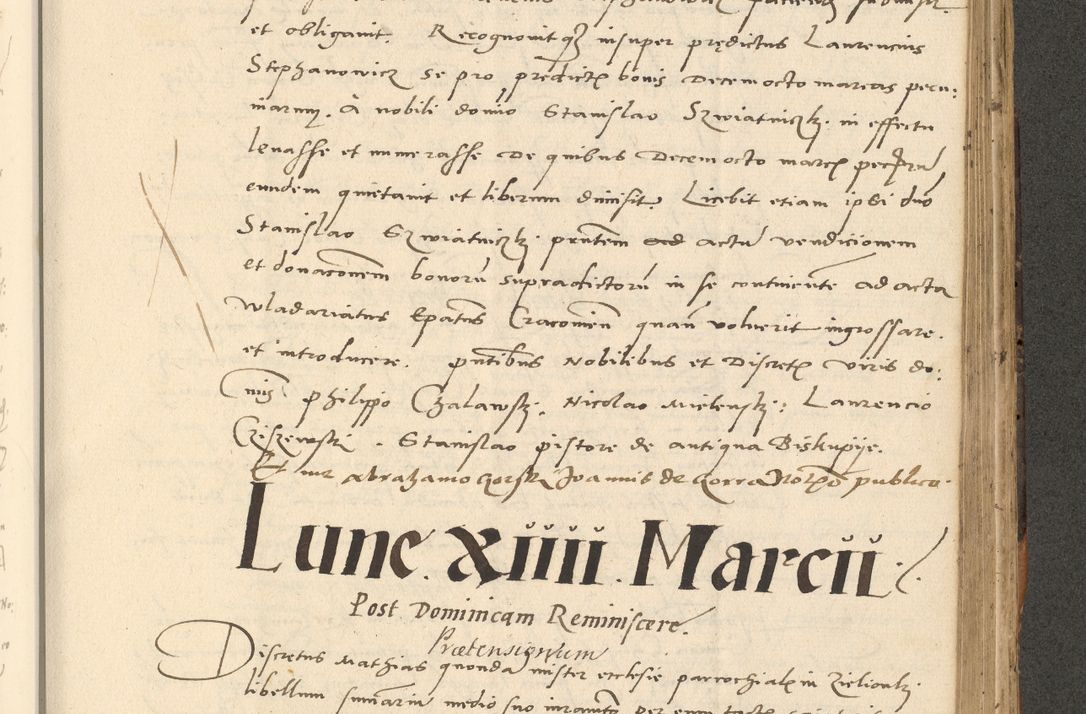 et obligavit. Recognovitq3 insuper prędictus Laurencius
Stephanowicz se pro predictis bonis decem octo marcas pecu:
niarum. A nobili domino Stanislao Szwiatniczki in effectu
levasse et numerasse de quibus decem octo marcis pecuniarum
eundem quietavit et liberum dimisit. Licebit etiam ipsi dno
Stanislao Szwiatniczki. pritem ad actu vendicionem
et donaconem bonoru supradictoru in se continente ad acta
Wladariatus Epatus Cracovien quan voluerit ingrossare.
et introducere. pntibus Nobilibus et Discretis viris do:
nis Philippo Chalawski, Nicolao Mielenski: Laurencio
Cziszewski. Stanislao pistore de antiqua Biskupije.
Et me Abrahamo Gorski Joannis de Gorra Notrio publico.
Lune. xiiii. Marcii.
Post Dominicam Reminiscere.
Prætensignium
Discretus Mathias quonda mister ecclesie parrochialis in Zielonki
libellum sumariu medio suo iuramto per eum